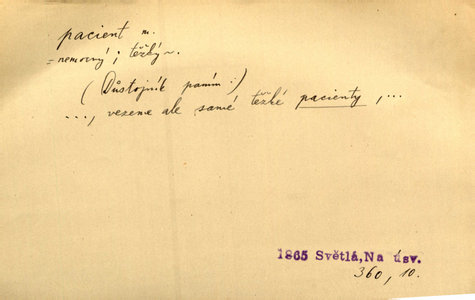 pacient m.
= nemocný; těžký ~.
(Důstojník paním:)
..., vezeme ale samé těžké pacienty, ...
1865 Světlá,Na úsv.
360, 10.